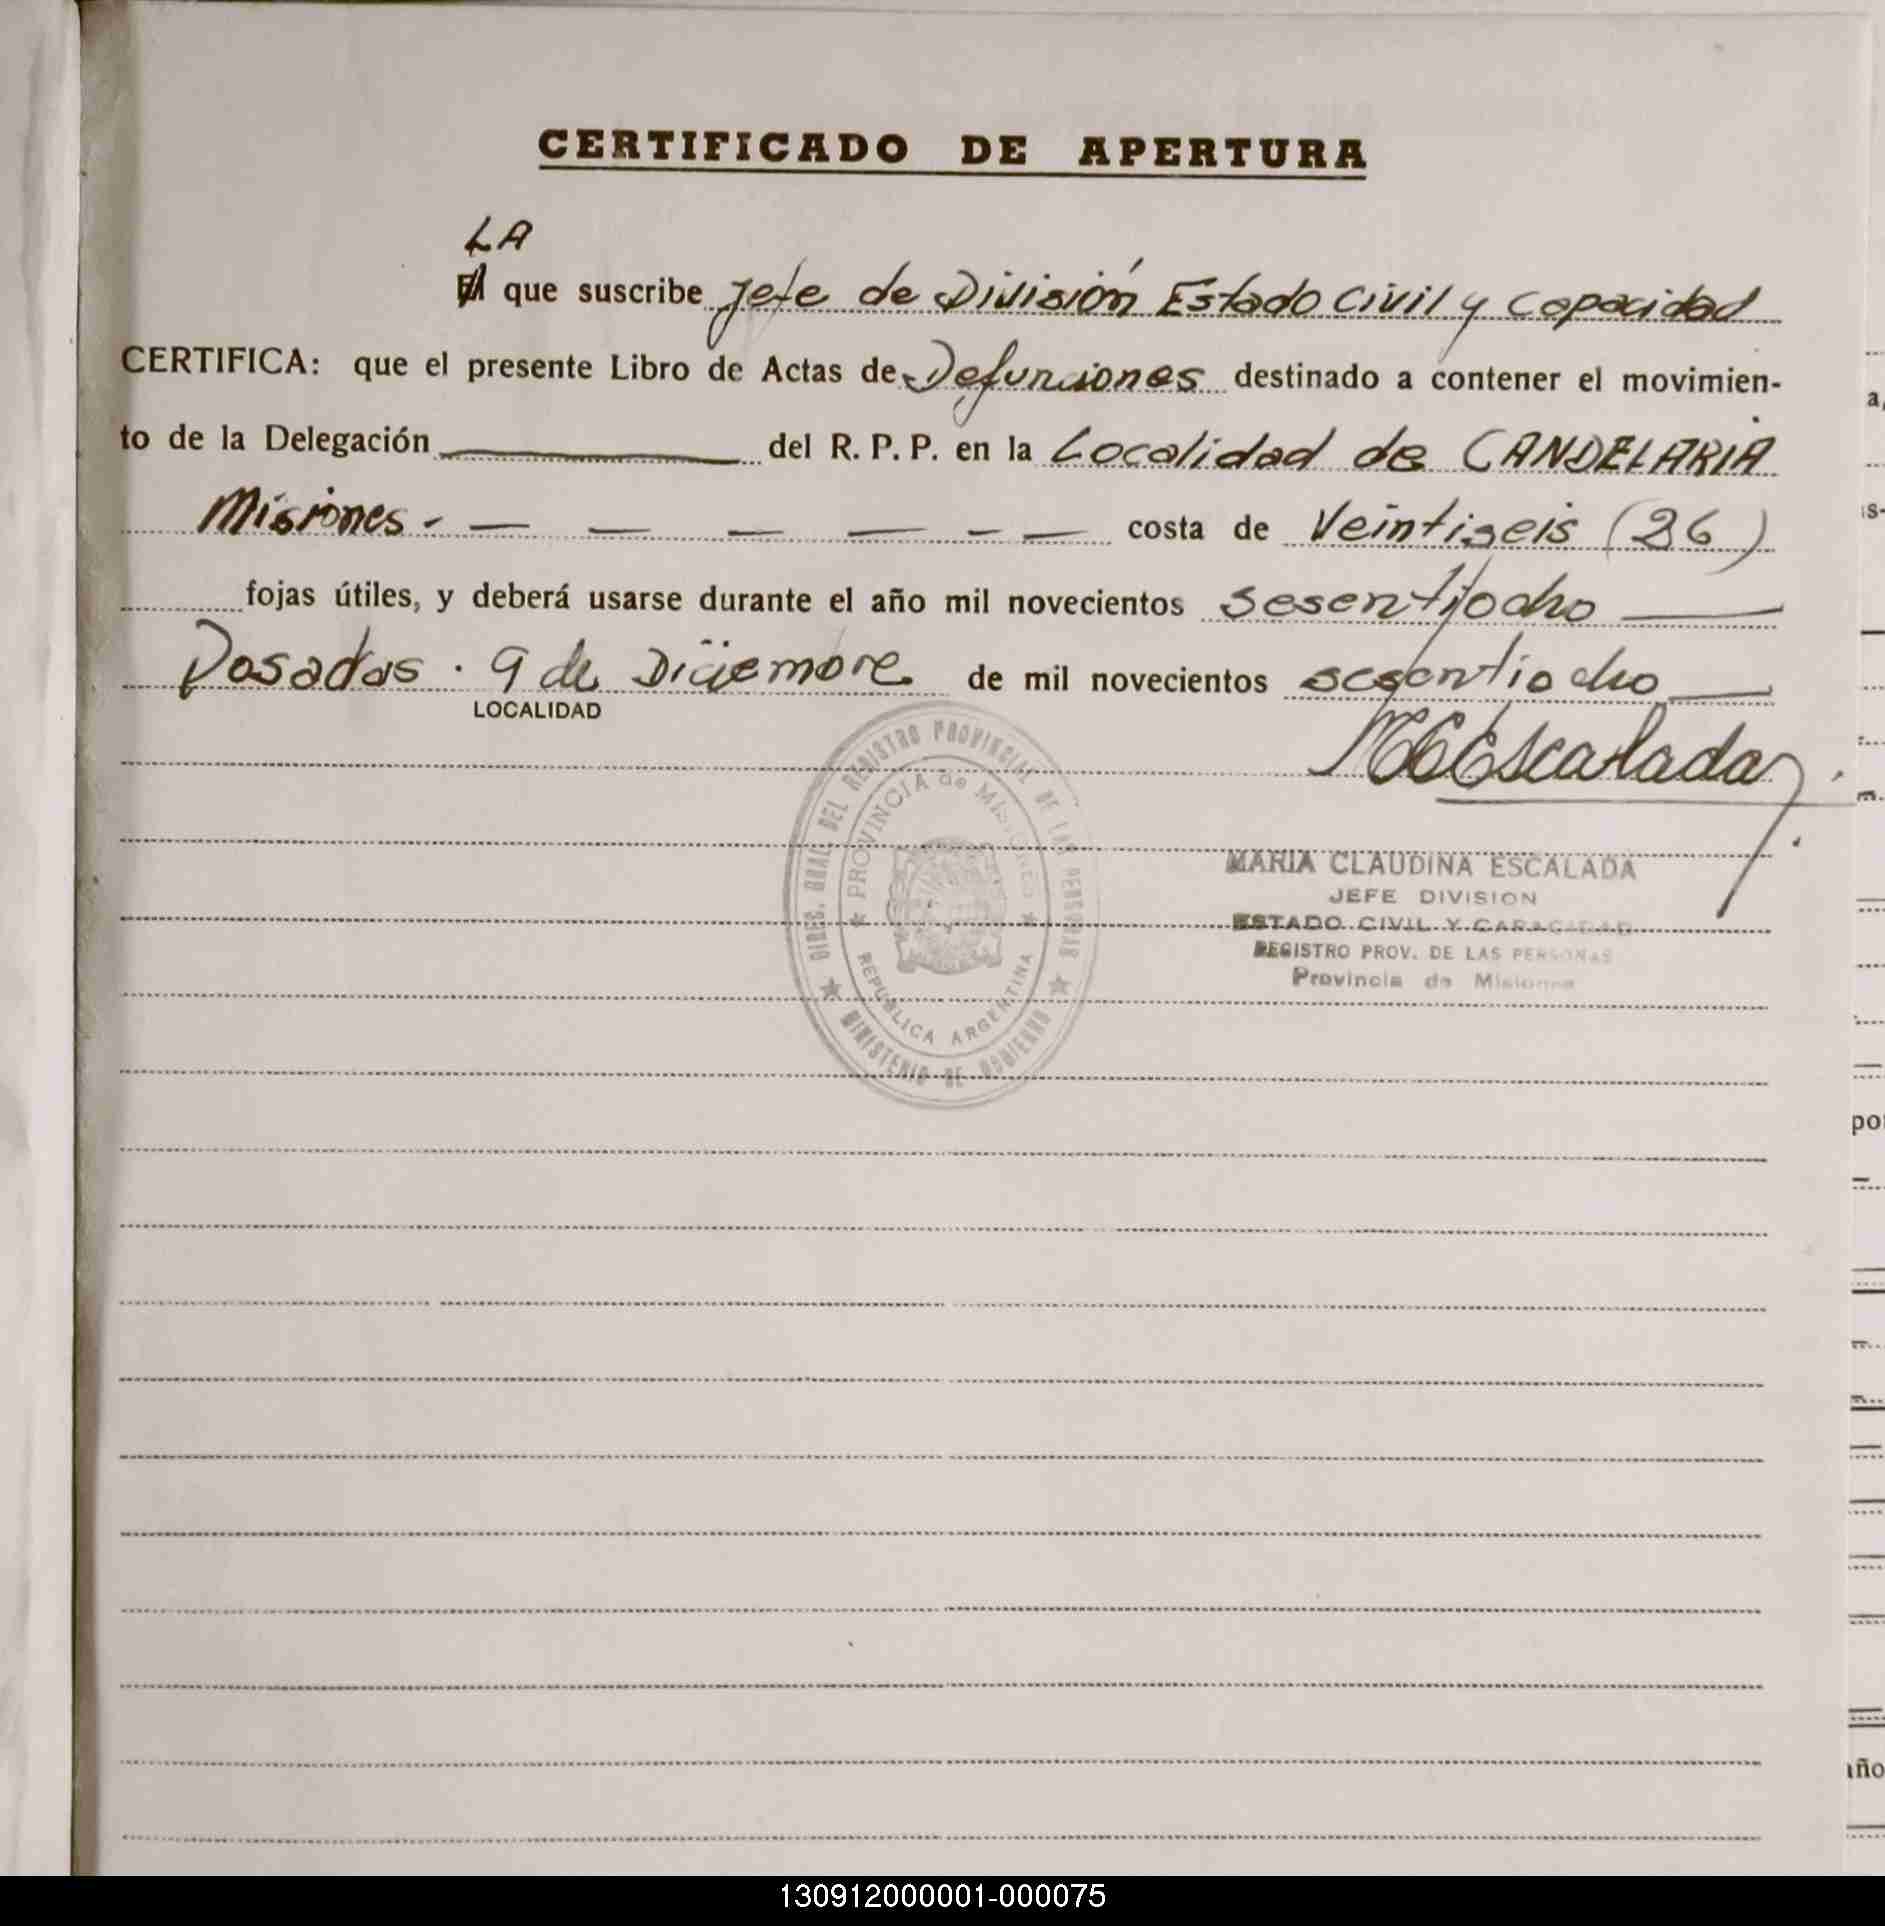 CERTIFICADO DE APERTURA
LA
El que suscribe Jefe de División Estado Civil y Capacidad
CERTIFICA: que el presente Libro de Actas de Defunciones destinado a contener el movimien-
to de la Delegación del R. P. P. en la Localidad de CANDELARIA
Misiones.- — — — — - — costa de Veintiseis (26)
fojas útiles, y deberá usarse durante el año mil novecientos sesentiocho —
Posadas . 9 de Diciembre de mil novecientos sesentiocho —
LOCALIDAD
MCEscalada
MARIA CLAUDINA ESCALADA
JEFE DIVISION
ESTADO CIVIL Y CAPACIDAD
REGISTRO PROV. DE LAS PERSONAS
Provincia de Misiones
DIREC. GRAL. DEL REGISTRO PROVINCIAL DE LAS PERSONAS
PROVINCIA de MISIONES
REPUBLICA ARGENTINA
MINISTERIO DE GOBIERNO
a,
is-
m.
por
año
130912000001-000075